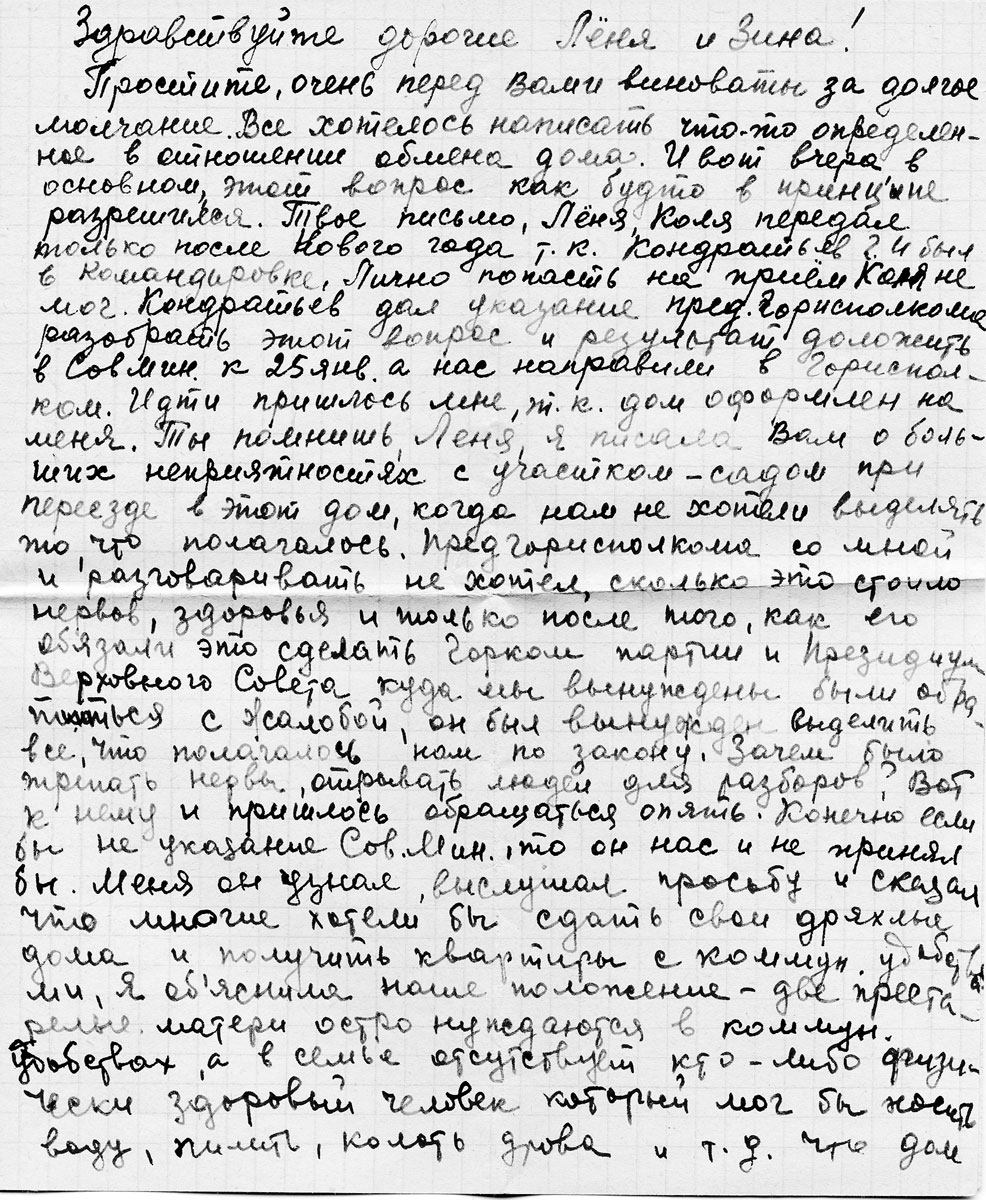 Здравствуйте дорогие Лёня и Зина!
Простите, очень перед Вами виноваты за долгое
молчание. Все хотелось написать что-то определен-
ное в отношении обмена дома. И вот вчера в
основном, этот вопрос как будто в принципе
разрешился. Твое письмо, Лёня, Коля передал
только после Нового года т.к. Кондратьев был
в командировке. Лично попасть на приём Коля не
мог. Кондратьев дал указание пред. Горисполкома
разобрать этот вопрос и результат доложить
в Сов.мин. к 25 янв. а нас направили в Гориспол-
ком. Идти пришлось мне, т.к. дом оформлен на
меня. Ты помнишь, Леня, я писала Вам о боль-
ших неприятностях с участком-садом при
переезде в этот дом, когда нам не хотели выделять
то, что полагалось. Предгорисполкома со мной
и разговаривать не хотел, сколько это стоило
нервов, здоровья и только после того, как его
обязали это сделать Горком партии и Президиум
Верховного Совета куда мы вынуждены были обра-
титься с жалобой, он был вынужден выделить
все, что полагалось нам по закону. Зачем было
трепать нервы, отрывать людей для разборов? Вот
к нему и пришлось обращаться опять. Конечно если
бы не указание Сов.Мин., то он нас и не принял
бы. Меня он узнал, выслушал просьбу и сказал
что многие хотели бы сдать свои дряхлые
дома и получить квартиры с коммун. удобства
ми, Я об'яснила наше положение – две преста-
релые матери остро нуждаются в коммун.
удобствах, а в семье отсутствует кто-либо физи-
чески здоровый человек который мог бы носить
воду, пилить, колоть дрова и т.д. Что дом